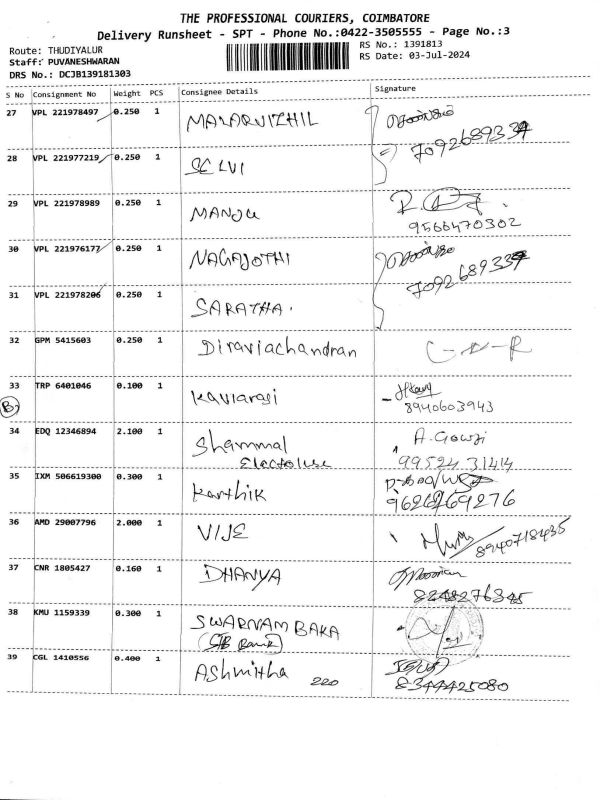 THE PROFESSIONAL COURIERS, COIMBATORE
Delivery Runsheet - SPT - Phone No.:0422-3505555 - Page No.:3
Route: THUDIYALUR
Staff: PUVANESHWARAN
DRS No.: DCJB139181303
RS No.: 1391813
RS Date: 03-Jul-2024
S No Consignment No Weight PCS Consignee Details Signature
27 VPL 221978497 0.250 1 MALARVIZHIL
7092689337
28 VPL 221977219 0.250 1 SELVI
29 VPL 221978989 0.250 1 MANJU
9566470302
30 VPL 221976177 0.250 1 NAGAJOTHI
7092689337
31 VPL 221978206 0.250 1 SARATHA.
32 GPM 5415603 0.250 1 Diraviachandran
33 TRP 6401046 0.100 1 Kaviarasi
B
8940603943
34 EDQ 12346894 2.100 1 Shammal A. Gowri
99524 31414
35 IXM 506619300 0.300 1 Karthik
9626769276
36 AMD 29007796 2.000 1 VIJE
8940718435
37 CNR 1805427 0.160 1 DHANYA
38 KMU 1159339 0.300 1 SWARNAMBAKA
39 CGL 1410556 0.400 1 Ashmitha 220
8344425080